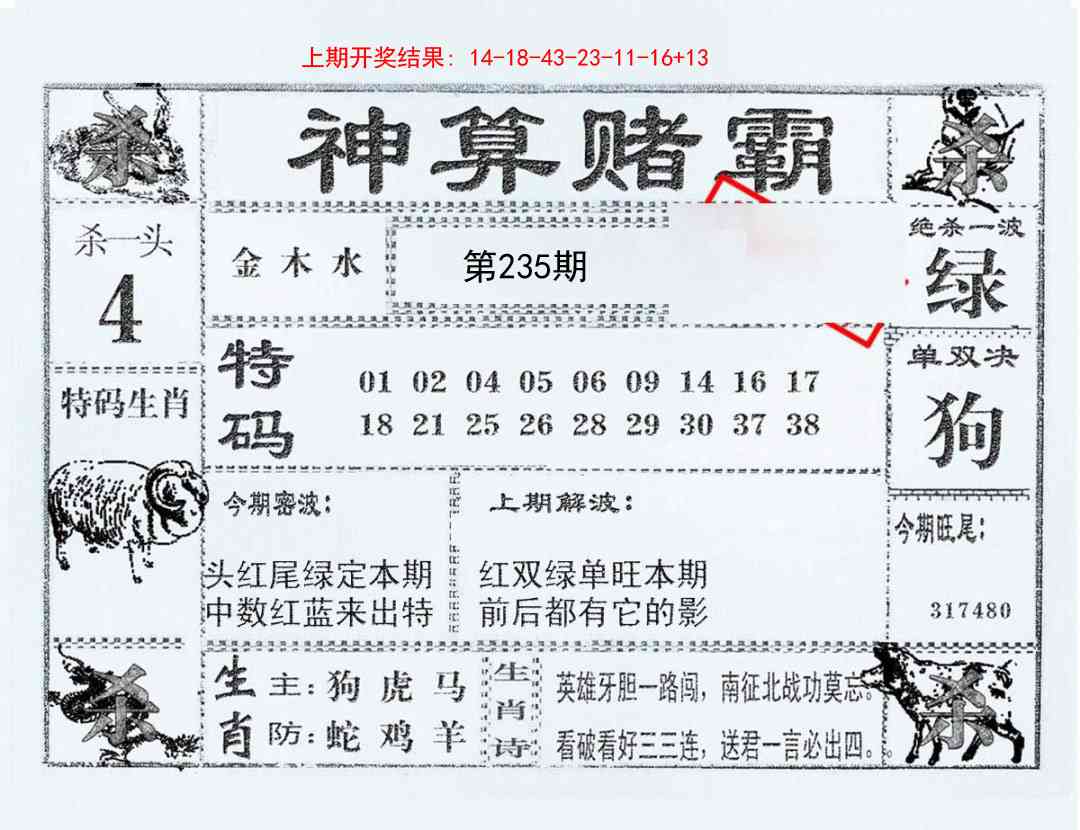 上期开奖结果：14-18-43-23-11-16+13
杀
神算赌霸
杀
杀一头
4
金木水
第235期
绝杀一波
绿
特码
01 02 04 05 06 09 14 16 17
18 21 25 26 28 29 30 37 38
单双决
狗
特码生肖
今期密波：
头红尾绿定本期
中数红蓝来出特
上期解波：
红双绿单旺本期
前后都有它的影
今期旺尾：
317480
杀
生肖
主：狗虎马
防：蛇鸡羊
生肖诗
英雄牙胆一路闯，南征北战功莫忘。
看破看好三三连，送君一言必出四。
杀